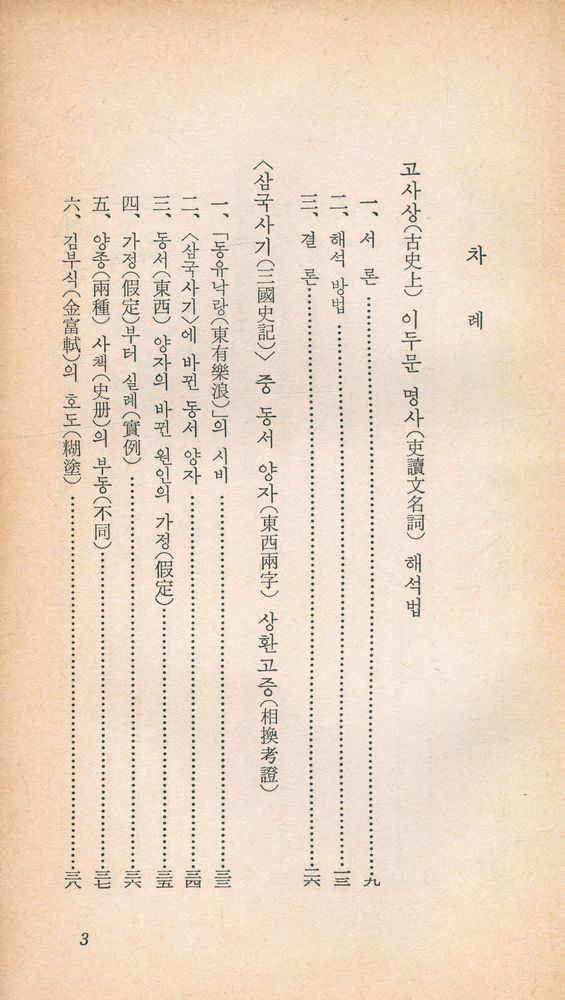 차 례
고사상(古史上) 이두문 명사(吏讀文名詞) 해석법
一、서 론……………九
二、해석 방법……………一三
三、결 론……………二六
〈삼국사기(三國史記)〉 중 동서 양자(東西兩字) 상환고증(相換考證)
一、「동유낙랑(東有樂浪)」의 시비……………三三
二、〈삼국사기〉에 바뀐 동서 양자……………三四
三、동서(東西) 양자의 바뀐 원인의 가정(假定)……………三五
四、가정(假定)부터 실례(實例)……………三六
五、양종(兩種) 사책(史册)의 부동(不同)……………三七
六、김부식(金富軾)의 호도(糊塗)……………三八
3